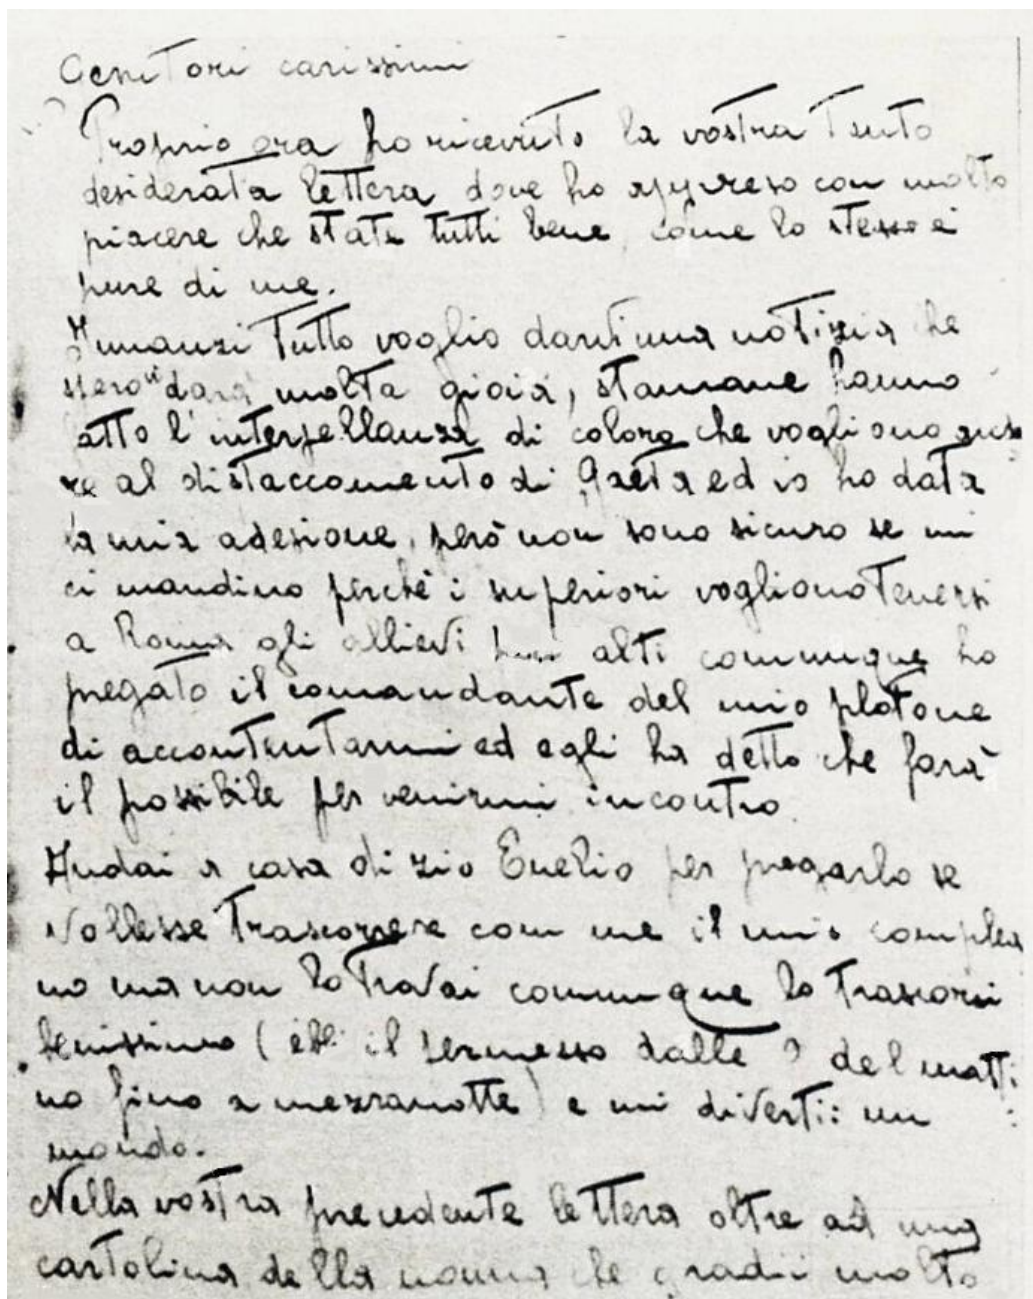 Genitori carissimi
Proprio ora ho ricevuto la vostra tanto
desiderata lettera dove ho appreso con molto
piacere che state tutti bene, come lo stesso è
pure di me.
Innanzi tutto voglio darvi una notizia che
spero vi darà molta gioia, stamane hanno
atto l'interpellanza di coloro che vogliono
al distaccamento di Gaeta ed io ho data
la mia adesione, però non sono sicuro se mi
ci mandino perché i superiori vogliono tenersi
a Roma gli allievi alti comunque ho
pregato il comandante del mio plotone
di accontentarmi ed egli ha detto che farà
il possibile per venirmi incontro.
Andai a casa di zio Evelio per pregarlo se
vollesse trascorrere com me il mio complea
no ma non lo trovai comunque lo trascorsi
benissimo (ebbi il permesso dalle del matti
no fino a mezzanotte) e mi divertii un
mondo.
Nella vostra precedente lettera oltre ad una
cartolina della nonna che gradii molto